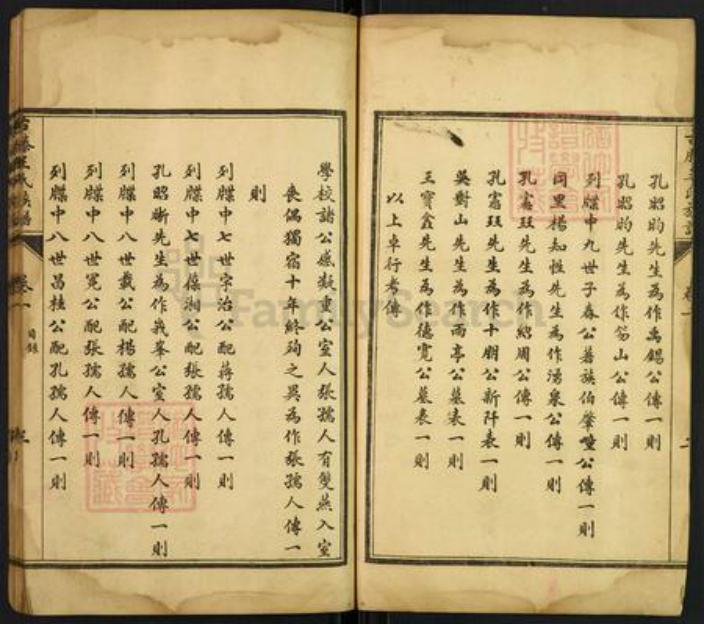 孔昭昀先生為作禹錫公傳一則
孔昭昀先生為作笏山公傳一則
列牒中九世子春公暮族伯肇唑公傳一則
同里楊知性先生為作湯泉公傳一則
孔憲珏先生為作紹周公傳一則
孔憲珏先生為作十朋公新阡表一則
吳對山先生為作雨亭公墓表一則
王寶鑫先生為作德寬公墓表一則
以上卓行考傳
學校諸公癒擬重公室人張孺人有雙燕入室
喪偶獨宿十年終殉之異為作張孺人傳一
則
列牒中七世字治公配蔣孺人傳一則
列牒中七世葆湘公配張孺人傳一則
孔昭晰先生為作峩峯公室人孔孺人傳一則
列牒中八世載公配楊孺人傳一則
列牒中八世冕公配張孺人傳一則
列牒中八世昌桂公配孔孺人傳一則
卷一
目錄
FamilySearch